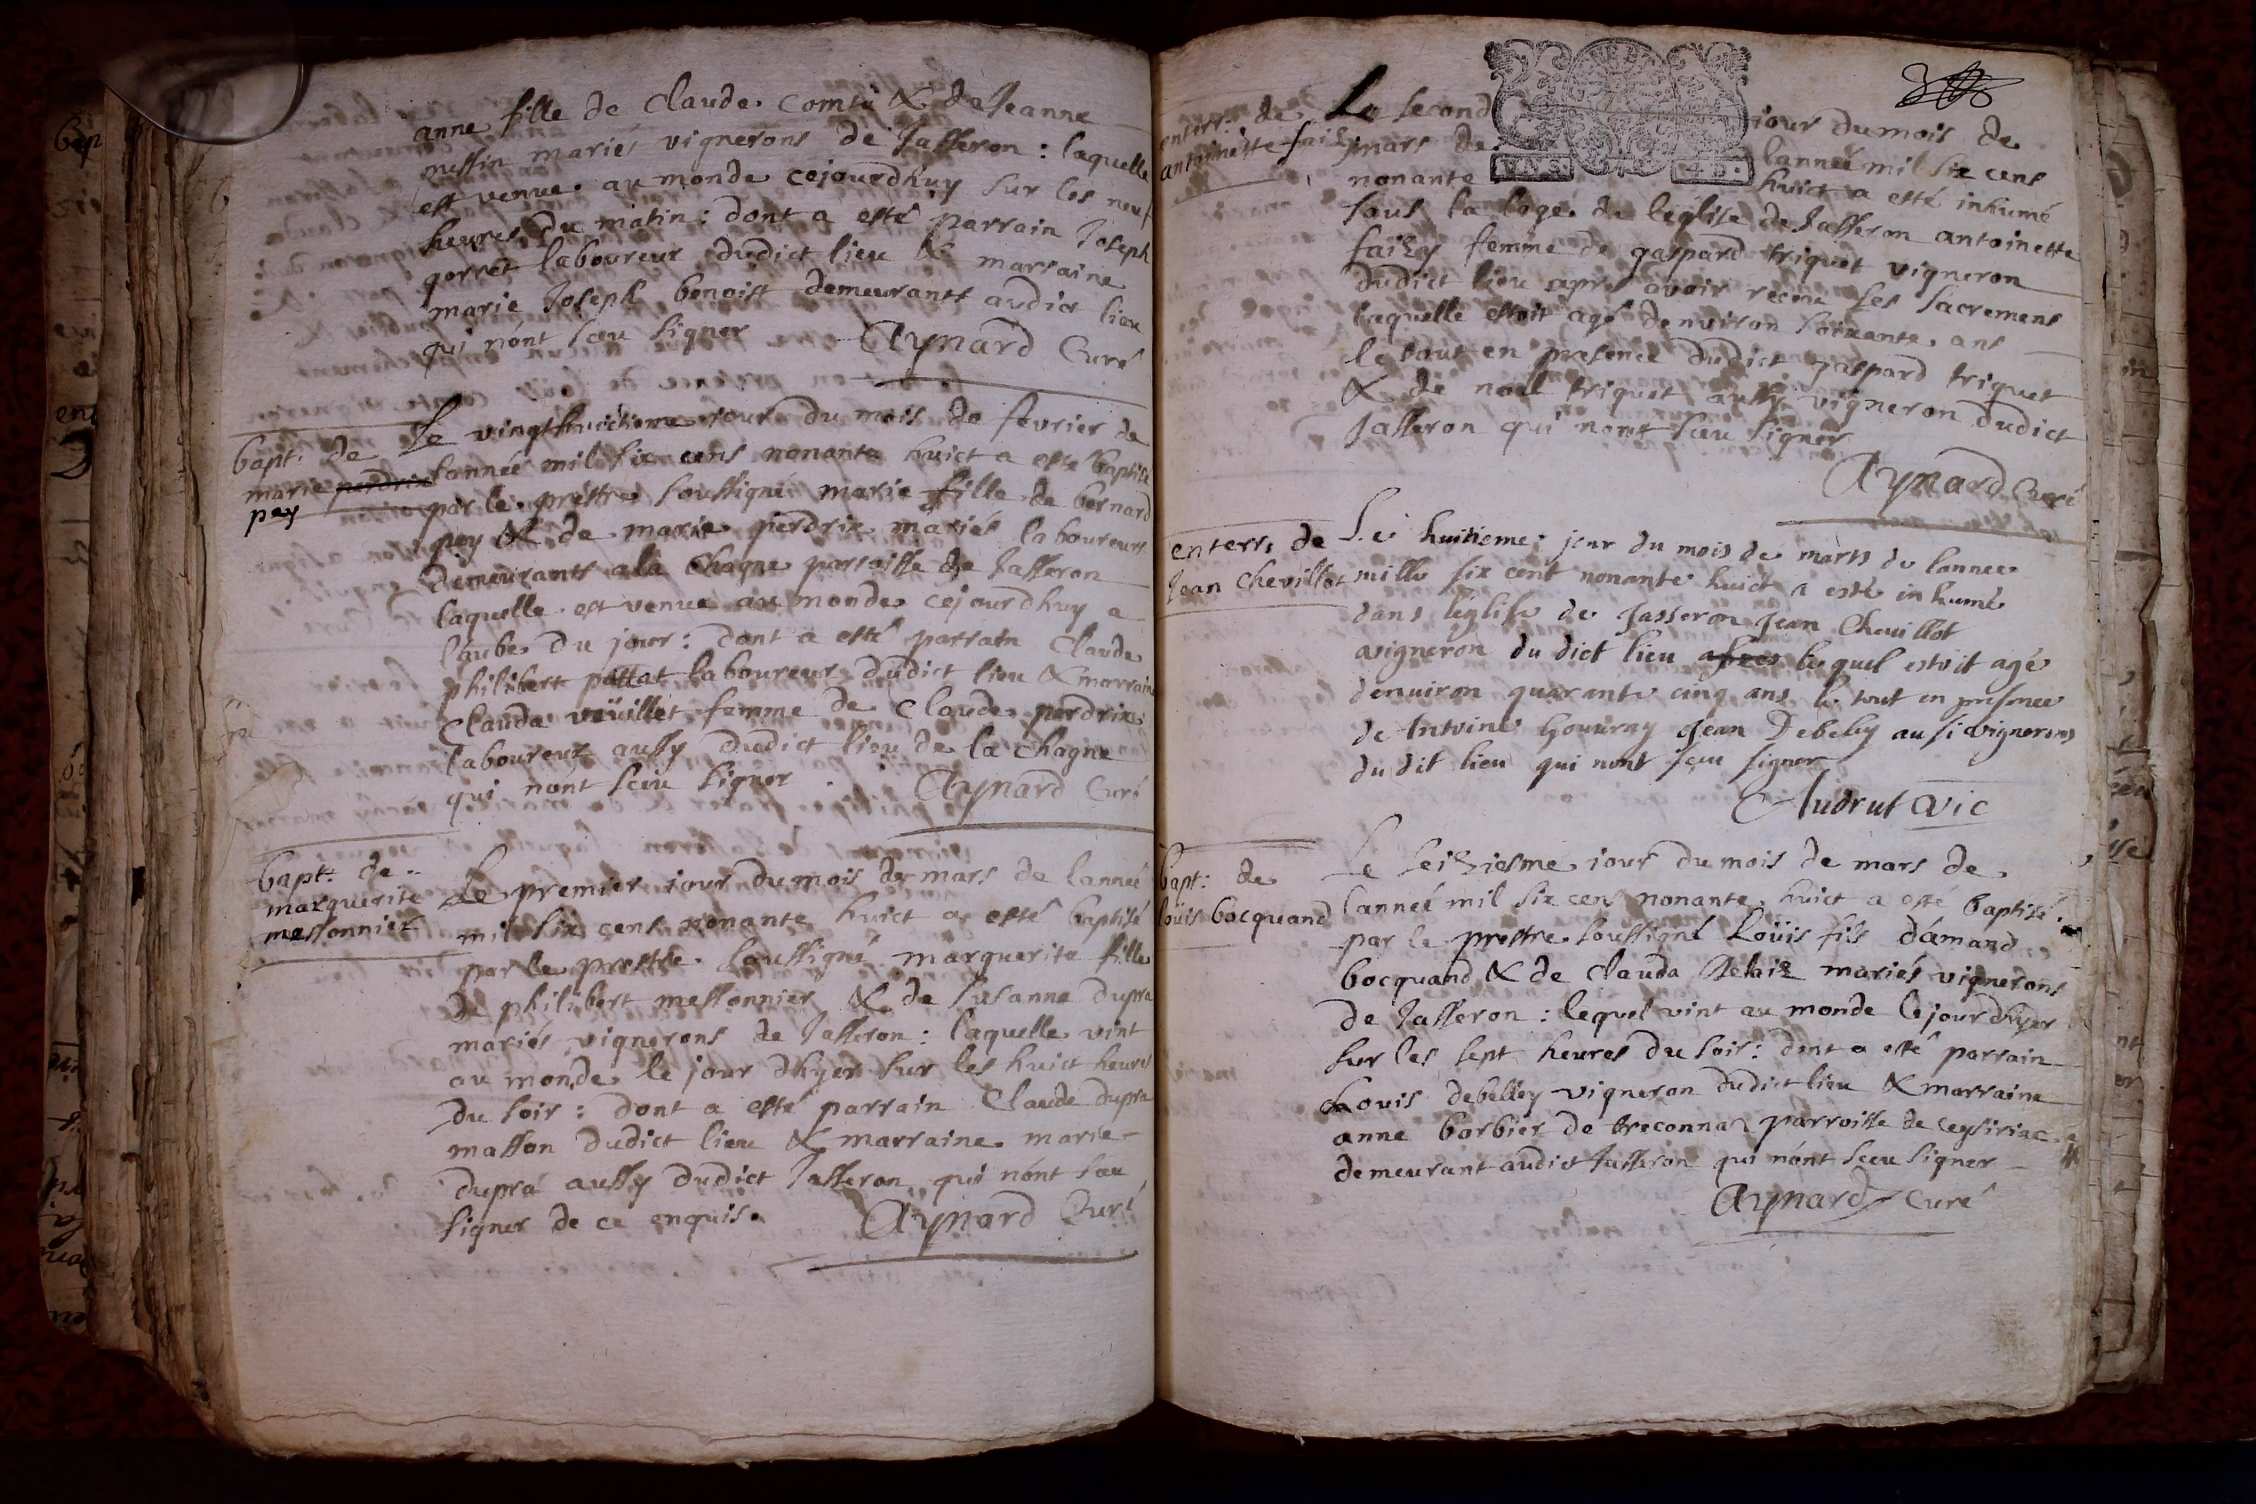 anne fille de Claude comte & de Jeanne
nussin mariés vignerons de Jasseron : laquelle
est venue au monde cejourdhuy sur les neuf
heures du matin : dont a esté parrain Joseph
gorret laboureur dudict lieu & marraine
marie Joseph benoist demeurants audict lieu
qui nónt sceu signer Aynard Curé
bapt: de
marie perdrix
pey
Le vingthuictieme jour du mois de fevrier de
lannée mil six cens nonante huict a esté baptisé
par le prestre soussigné marie fille de bernard
pey & de marie perdrix mariés laboureurs
demeurants a la Chagne parroisse de Jasseron
laquelle est venue au monde cejourdhuy a
laube du jour : dont a esté parrain Claude
philibert pattat laboureur dudict lieu & marraine
Clauda veüillet femme de Claude perdrix
laboureur aussy dudict lieu de la Chagne
qui nónt sceu signer Aynard Curé
bapt: de
marguerite
messonnier
Le premier iour du mois de mars de lanneé
mil six cens nonante huict a esté baptisé
par le prestre soussigné marguerite fille
de philibert messonnier & de susanne dupra
mariés vignerons de Jasseron : laquelle vint
au monde le jour dhyer sur les huict heures
du soir : dont a esté parrain Claude dupra
masson dudict lieu & marraine marie
dupra aussy dudict Jasseron qui nónt sceu
signer de ce enquis. Aynard Curé
enterr: de
antoinette faizy
Le second iour du mois de
mars de lanneé mil six cens
nonante huict a esté inhumé
sous la loge de leglise de Jasseron antoinette
faizy femme de gaspard triquet vigneron
dudict lieu apres avoir receu les sacremens
laquelle estoit agé denviron soixante ans
le tout en presence dudict gaspard triquet
& de noel triquet aussy vigneron dudict
Jasseron qui nont sceu signer
Aynard Curé
enterr. de
Jean Chevillot
Le huitieme jour du mois de marts de lannee
mille six cent nonante huict a esté inhumé
dans léglise de Jasseron Jean Chevillot
vigneron du dict lieu apres lequel estoit agé
denuiron quarante cinq ans le tout en presence
de Antoine Jean Debeley ausi vignerons
du dit lieu qui nont sceu signer
Audrut Vic
bapt: de
loüis bocquand
Le seiziesme iour du mois de mars de
lanneé mil six cens nonante huict a esté baptisé
par le prestre soussigné Loüis fils dámand
bocquand & de Clauda mariés vignerons
de Jasseron : lequel vint au monde le jour dhyer
sur les sept heures du soir : dont a esté parrain
Louis debelley vigneron dudict lieu & marraine
anne borbier de treconnaz parroisse de ceysiriac
demeurant audict Jasseron qui nónt sceu signer
Aynard Curé